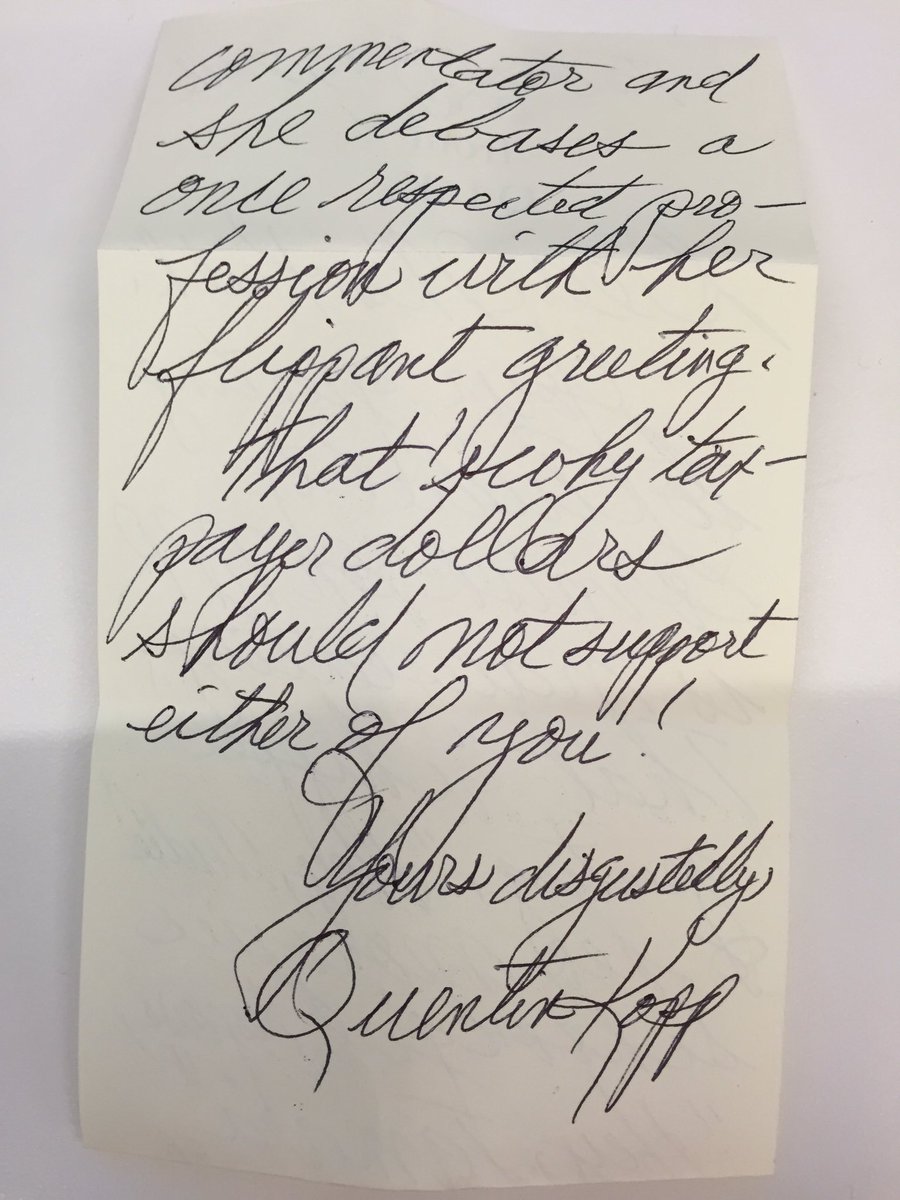 commentator and
she debases a
once respected pro-
fession with her
flippant greeting.
That's why tax-
payer dollars
should not support
either of you!
Yours disgustedly,
Quentin Kopp